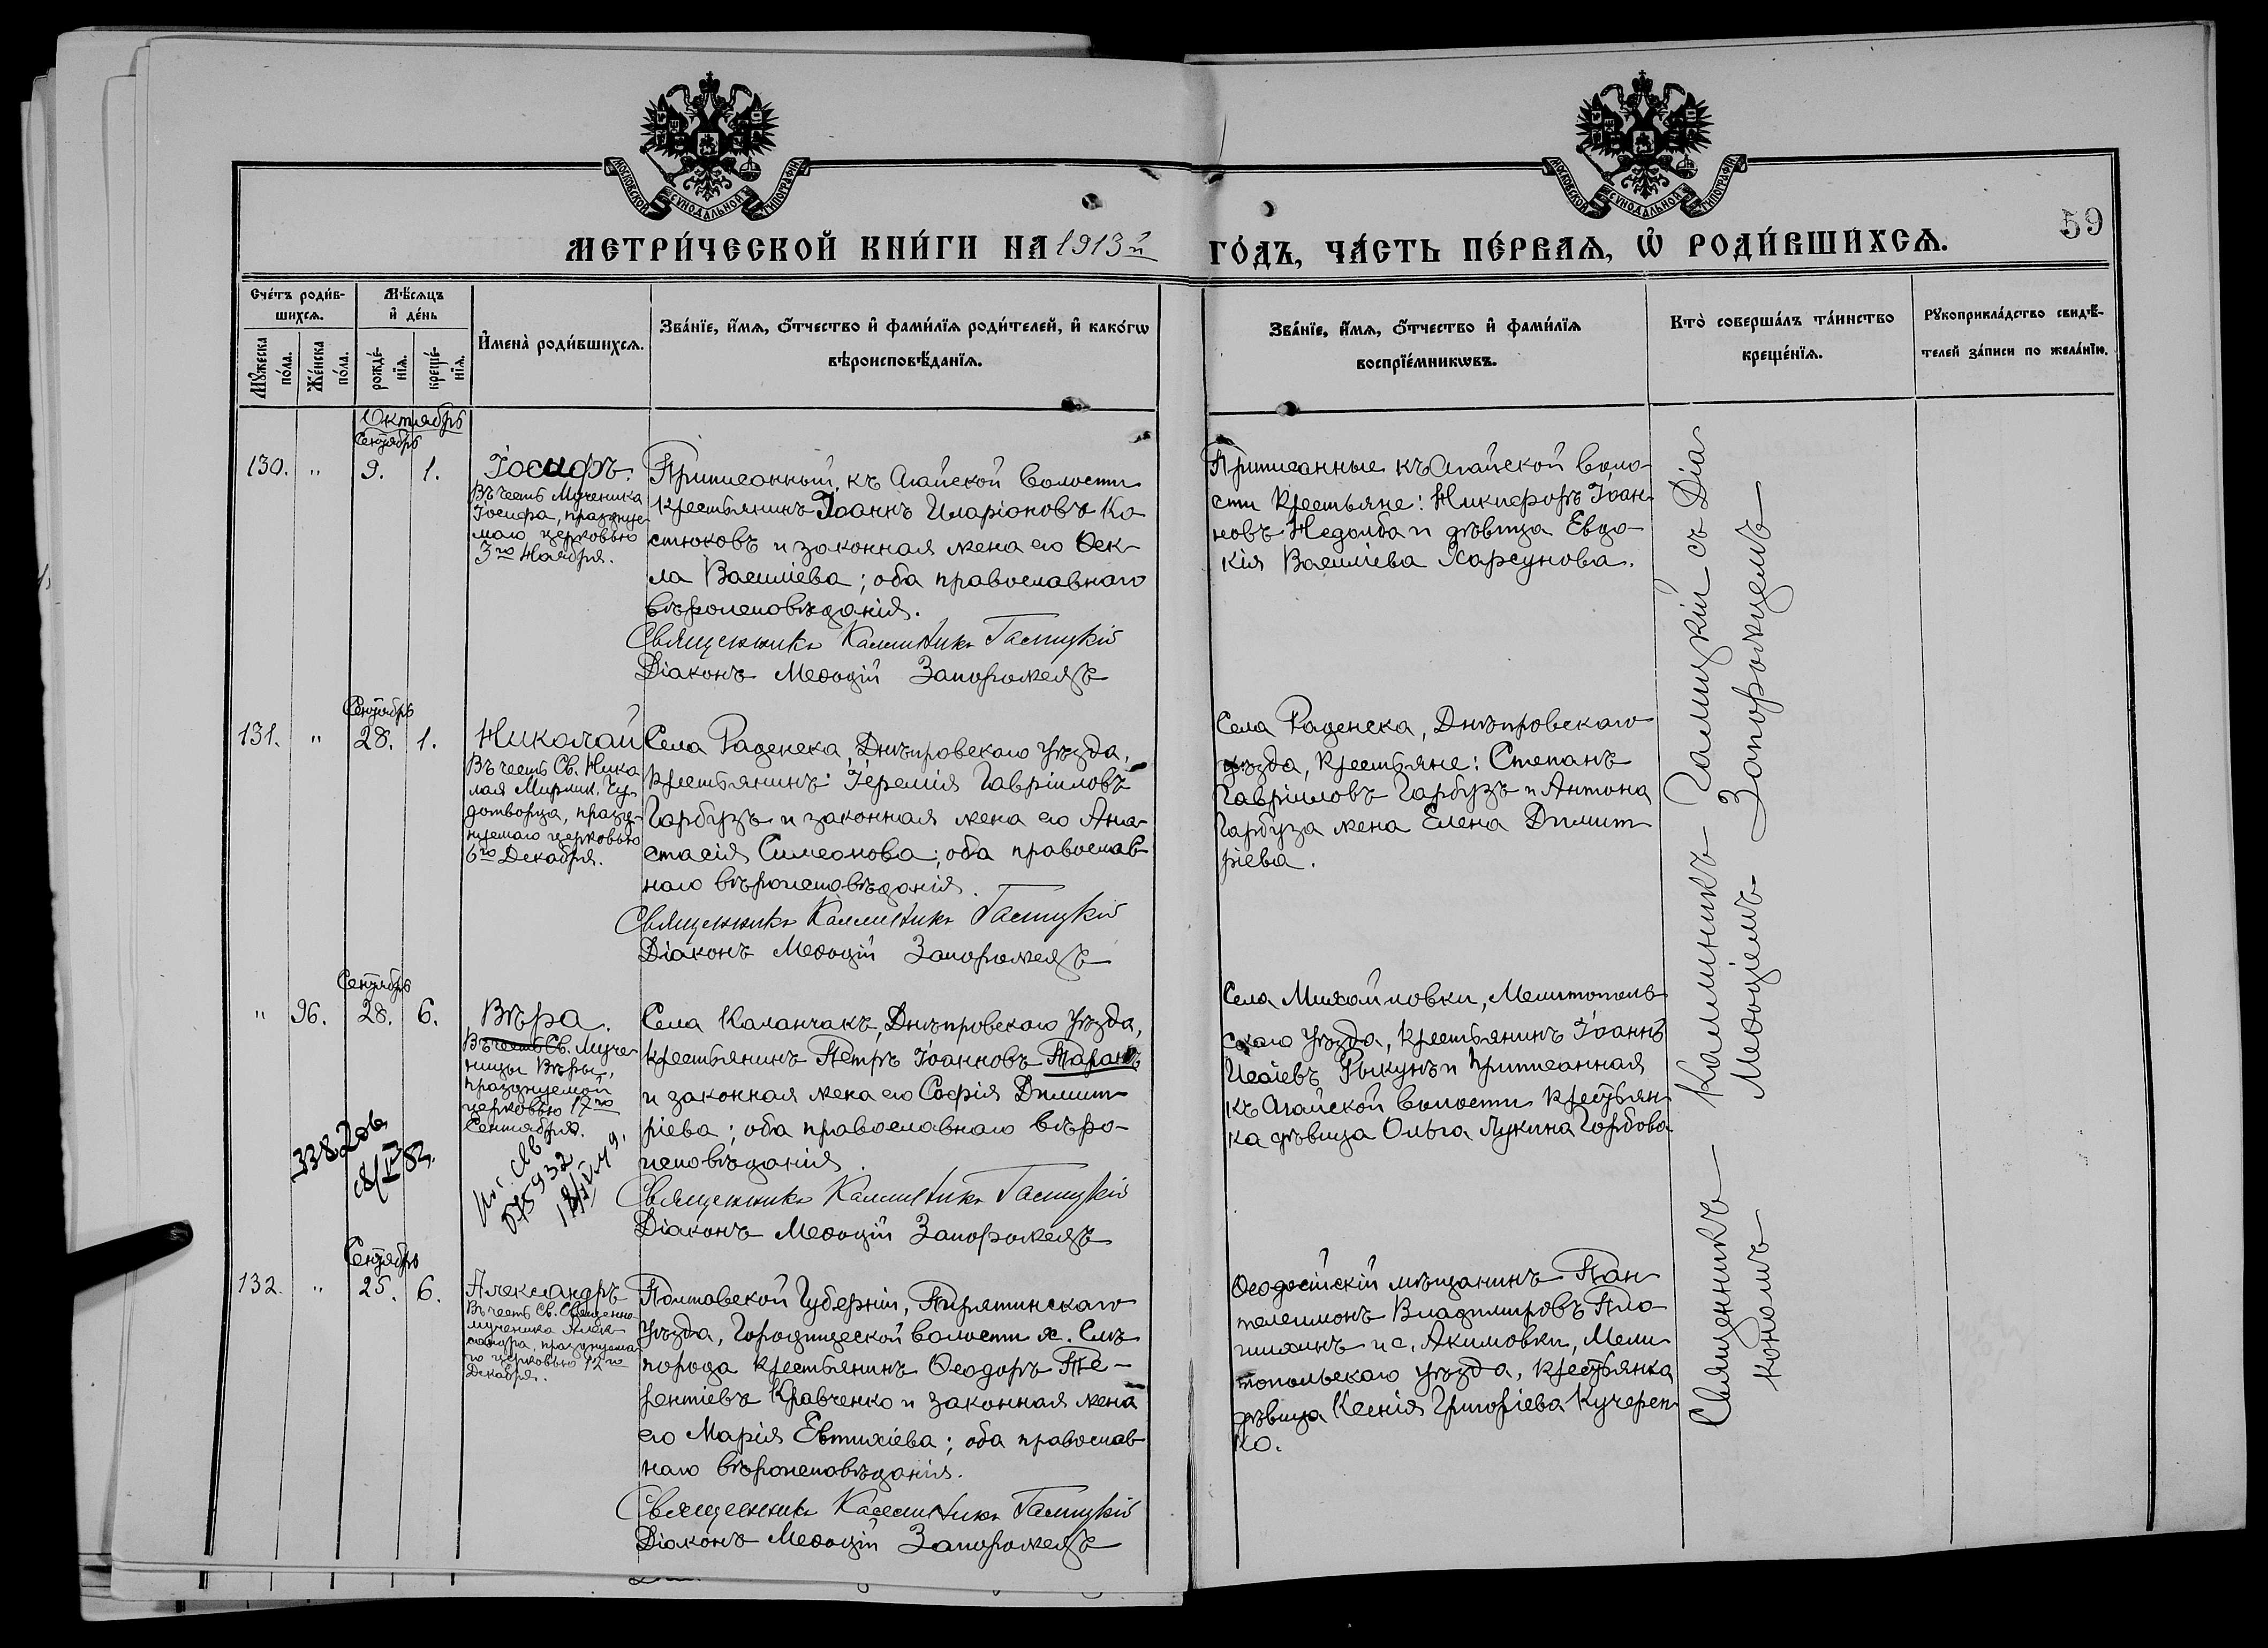 МОСКОВСКОЙ СѴНОДАЛЬНОЙ ТИПОГРАФІИ
МОСКОВСКОЙ СѴНОДАЛЬНОЙ ТИПОГРАФІИ
59
МЕТРИ́ЧЕСКОЙ КНИ́ГИ НА 1913й ГО́ДЪ, ЧА́СТЬ ПЕ́РВАЯ, Ѡ҆ РОДИ́ВШИХСЯ.
Сче́тъ роди́в-
шихся.
Мꙋ́жеска по́ла.
Же́нска по́ла.
Мѣ́сяцъ и҆ де́нь
рожде́-
нїя.
креще́-
нїя.
И҆мена̀ роди́вшихся.
Зва́нїе, и҆́мя, ѻ҆́тчество и҆ фами́лїя роди́телей, и҆ како́гѡ
вѣроисповѣ́данїя.
Зва́нїе, и҆́мя, ѻ҆́тчество и҆ фами́лїя
воспрїе́мникѡвъ.
Кто̀ соверша́лъ та́инство
креще́нїя.
Рꙋкоприкла́дство свидѣ́-
телей за́писи по жела́нїю.
Октябрь
Сентябрь
130. " 9. 1.
Іосифъ.
Въ честь Мученика
Іосифа, празднуе-
маго церковью
3го Ноября.
Приписанный къ Агайской волости
крестьянинъ Іоаннъ Иларіоновъ Ко
стюковъ и законная жена его Ѳек-
ла Василіева; оба православнаго
вѣроисповѣданія.
Священникъ Каллиникъ Галицкій
Діаконъ Меѳодій Запорожецъ
Приписанные къ Агайской воло-
сти крестьяне: Никифоръ Іоан-
новъ Недолба и дѣвица Евдо-
кія Василіева Харсунова.
Сентябрь
131. " 28. 1.
Николай
Въ честь Св. Нико
лая Мирлик. Чу-
дотворца, празд-
нуемаго церковью
6го Декабря.
Села Раденска, Днѣпровскаго уѣзда,
крестьянинъ Іеремія Гавріиловъ
Гарбузъ и законная жена его Ана-
стасія Симеонова; оба православ-
наго вѣроисповѣданія.
Священникъ Каллиникъ Галицкій
Діаконъ Меѳодій Запорожецъ
Села Раденска, Днѣпровскаго
уѣзда, крестьяне: Степанъ
Гавріиловъ Гарбузъ и Антона
Гарбуза жена Елена Димит
ріева.
Сентябрь
" 96. 28. 6.
Вѣра.
Въ честь Св. Муче-
ницы Вѣры,
празднуемой
церковью 17го
Сентября.
Села Каланчакъ, Днѣпровскаго уѣзда,
крестьянинъ Петръ Іоанновъ Таранъ
и законная жена его Софія Димит-
ріева; оба православнаго вѣро-
исповѣданія.
Священникъ Каллиникъ Галицкій
Діаконъ Меѳодій Запорожецъ
Села Михайловки, Мелитополь-
скаго уѣзда, крестьянинъ Іоаннъ
Исаіевъ Рыкунъ и приписанная
къ Агайской волости крестьян-
ка дѣвица Ольга Лукина Горбова
Сентябрь
132. " 25. 6.
Александръ
Въ честь Св. Священно-
мученика Алек-
сандра, празднуема-
го церковью 12го
Декабря.
Полтавской Губерніи, Пирятинскаго
уѣзда, Городищеской волости х. Слѣ
порода крестьянинъ Ѳеодоръ Те-
рентіевъ Кравченко и законная жена
его Марія Евтихіева; оба православ
наго вѣроисповѣданія.
Священникъ Каллиникъ Галицкій
Діаконъ Меѳодій Запорожецъ
Ѳеодосійскій мѣщанинъ Пан
телеимонъ Владиміровъ Пло
шихинъ и с. Акимовки, Мели
топольскаго уѣзда, крестьянка
дѣвица Ксенія Григоріева Кучерен-
ко.
Священникъ Каллиникъ Галицкій съ Діа
кономъ Меѳодіемъ Запорожцемъ